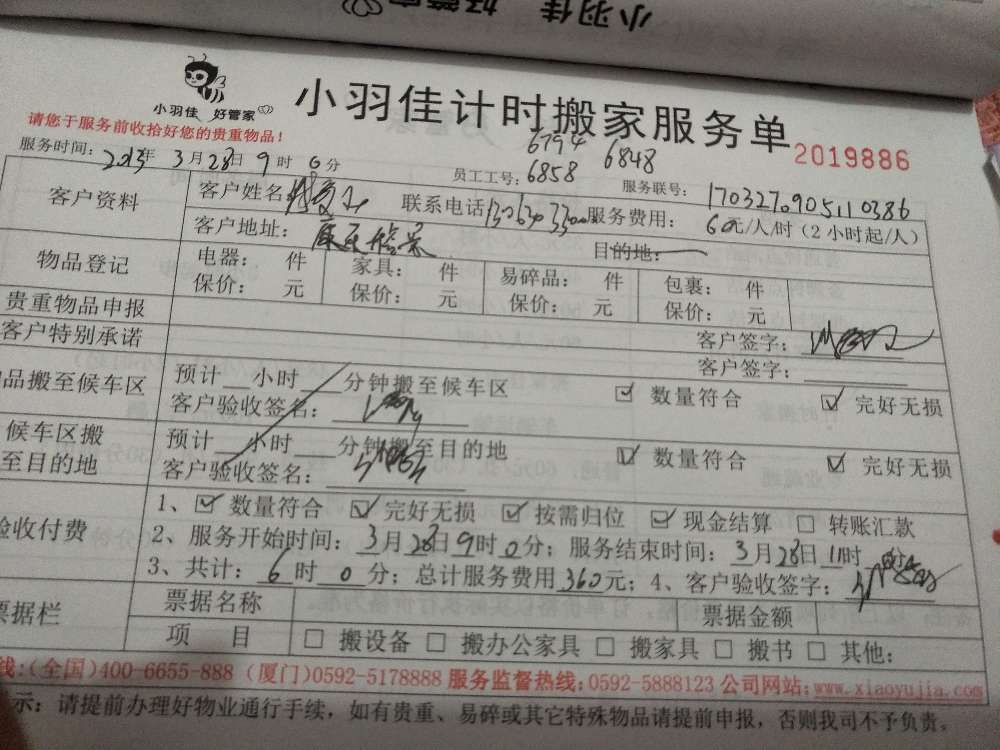 小羽佳 好管家
小羽佳 好管家
小羽佳计时搬家服务单
2019886
请您于服务前收拾好您的贵重物品!
6794 6848
服务时间: 年 3月28日9时0分 员工工号:6858 服务联号: 1703270905110386
客户资料 客户姓名 联系电话 服务费用: 60元/人/时(2小时起/人)
客户地址: 目的地:
物品登记 电器: 件 家具: 件 易碎品: 件 包裹: 件
保价: 元 保价: 元 保价: 元 保价: 元
贵重物品申报 客户签字:
客户特别承诺 客户签字:
品搬至候车区 预计 小时 分钟搬至候车区 ☑ 数量符合 ☑ 完好无损
客户验收签名:
候车区搬至目的地 预计 小时 分钟搬至目的地 ☑ 数量符合 ☑ 完好无损
客户验收签名:
验收付费 1、☑ 数量符合 ☑ 完好无损 ☑ 按需归位 ☑ 现金结算 □ 转账汇款
2、服务开始时间:3月28日9时0分;服务结束时间:3月28日11时 分
3、共计:6时0分;总计服务费用360元;4、客户验收签字:
票据栏 票据名称 票据金额
项 目 □ 搬设备 □ 搬办公家具 □ 搬家具 □ 搬书 □ 其他:
线:(全国)400-6655-888 (厦门)0592-5178888 服务监督热线:0592-5888123 公司网站:www.xiaoyujia.com
示:请提前办理好物业通行手续,如有贵重、易碎或其它特殊物品请提前申报,否则我司不予负责。